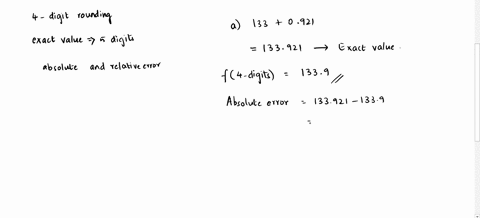 4-digit rounding
exact value ⇒ 5 digits
absolute and relative error
a) 133 + 0.921
= 133.921 → Exact value.
f(4-digits) = 133.9
Absolute error = 133.921 - 133.9
=